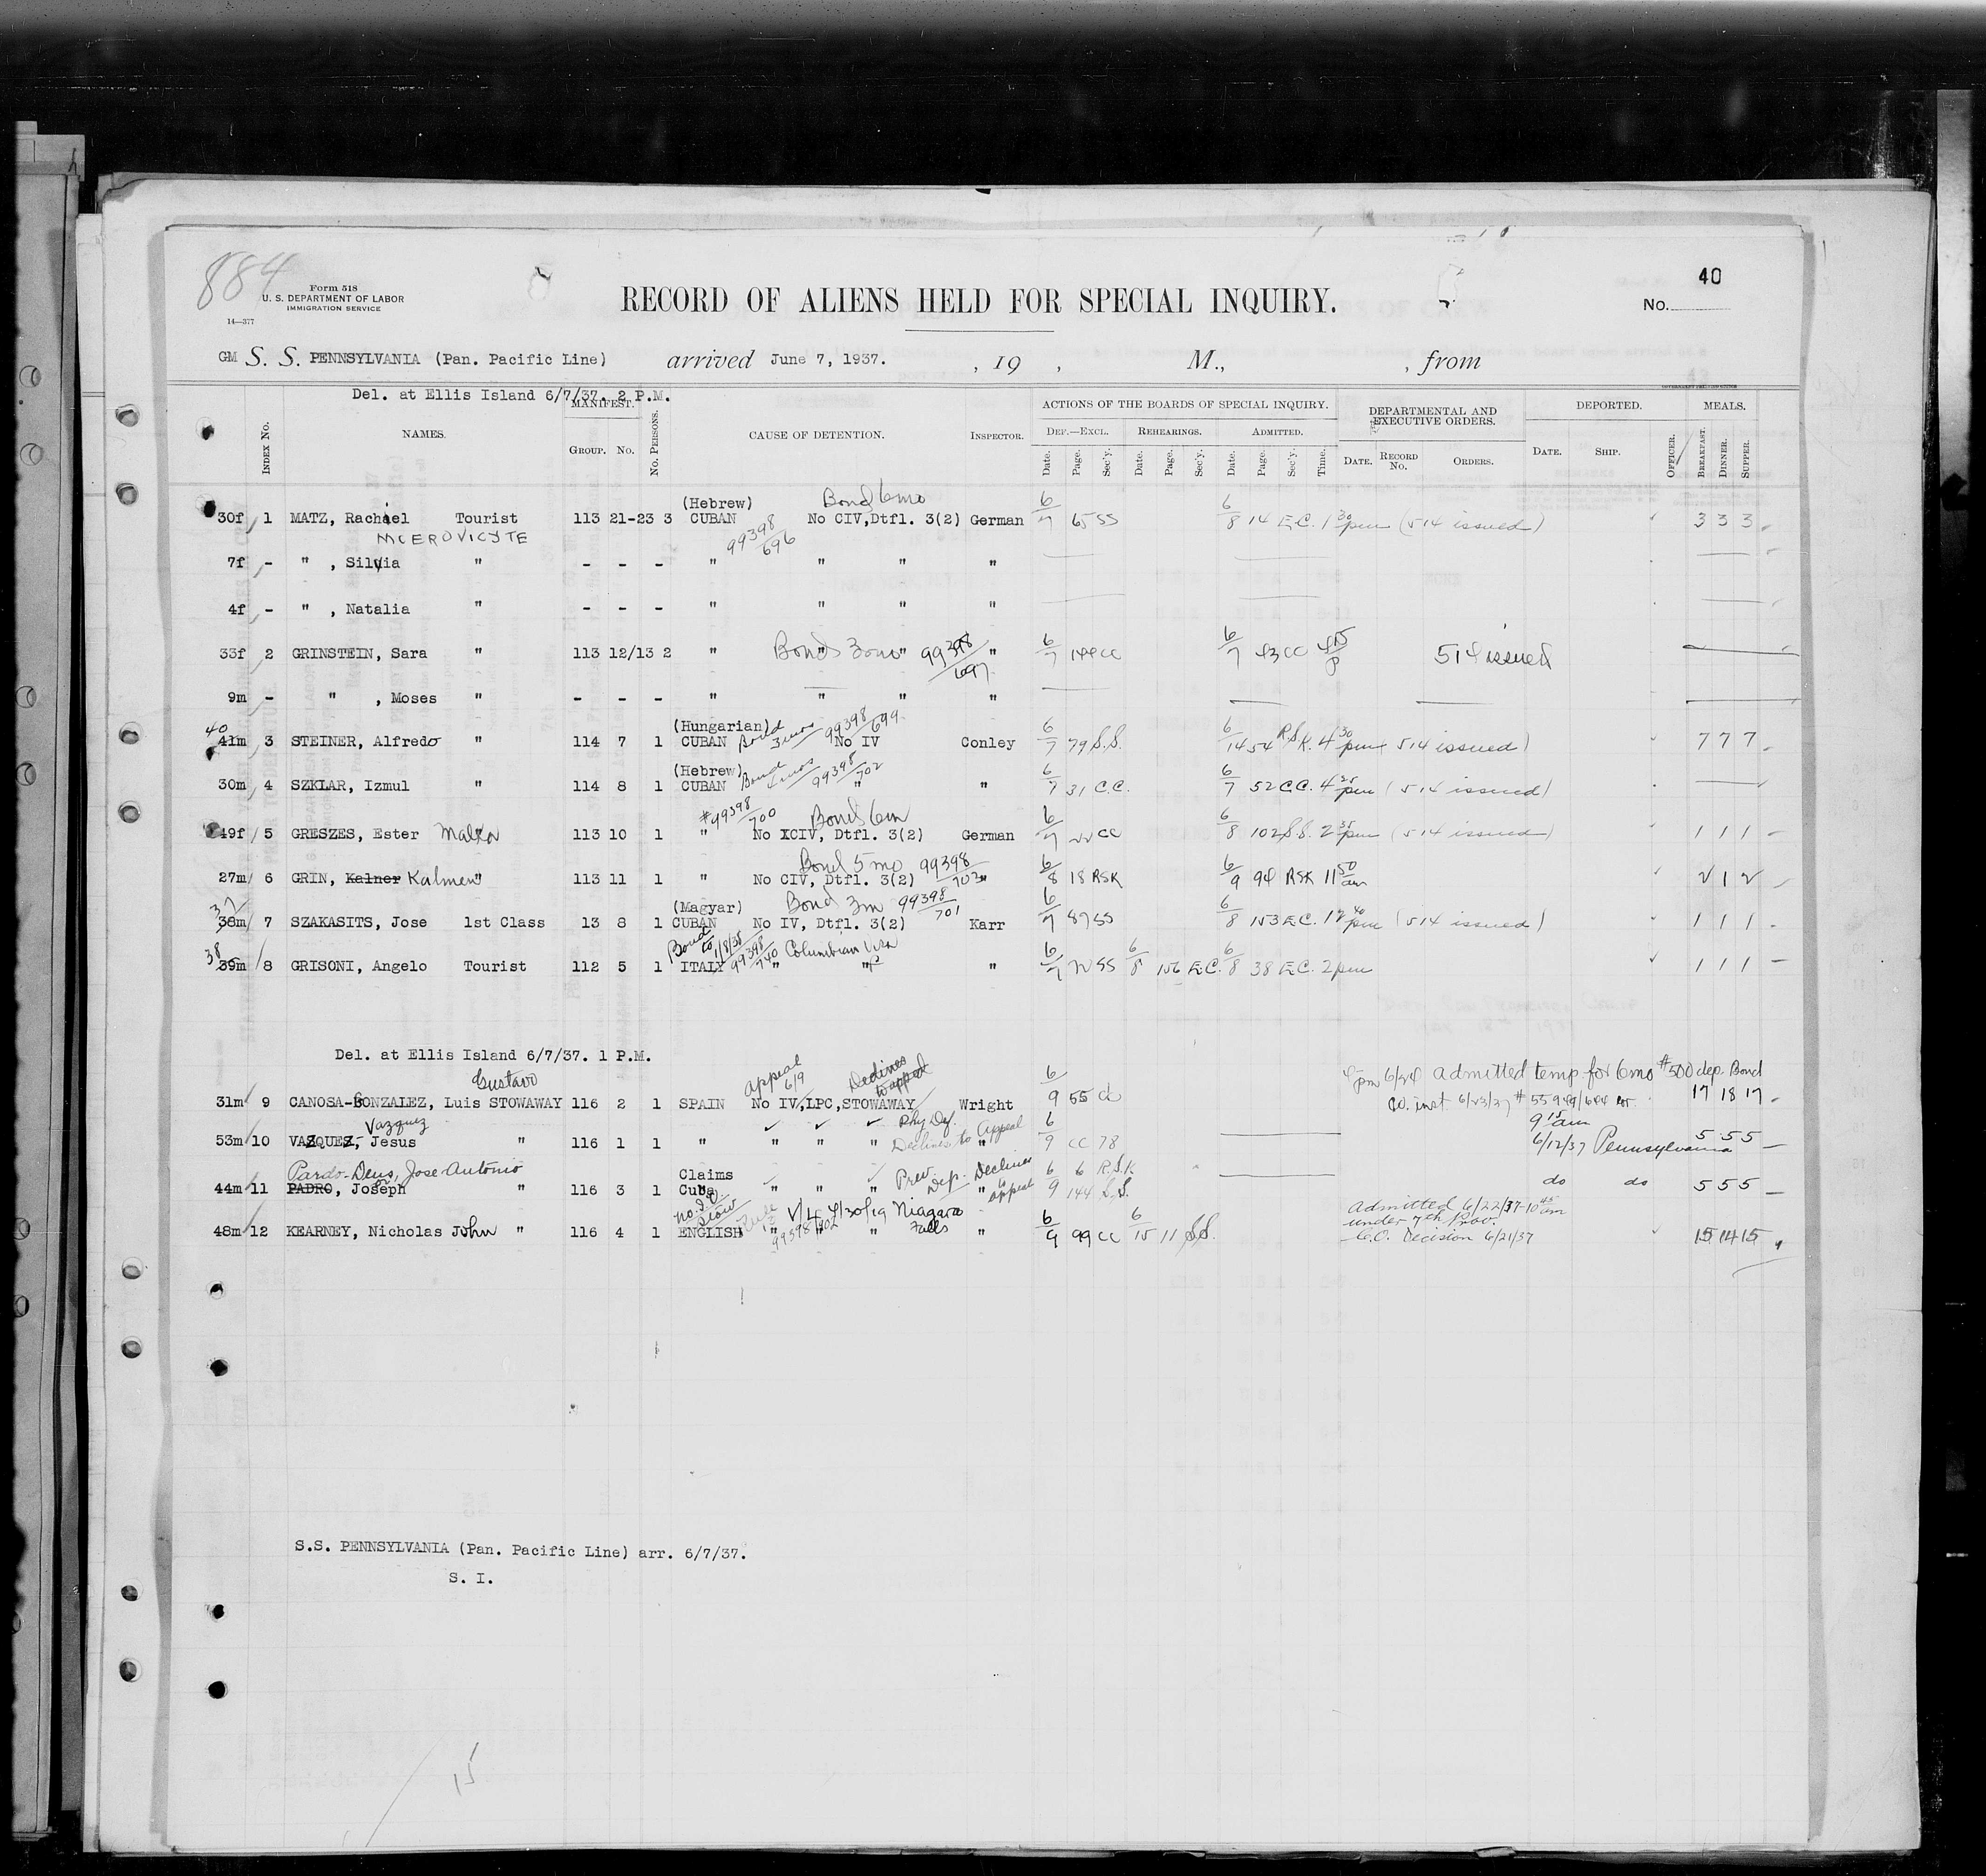 884
Form 518
U. S. DEPARTMENT OF LABOR
IMMIGRATION SERVICE
14—377
RECORD OF ALIENS HELD FOR SPECIAL INQUIRY.
40
No.
GM S. S. PENNSYLVANIA (Pan. Pacific Line) arrived June 7, 1937. , 19 , M., , from
Del. at Ellis Island 6/7/37. 2 P.M.
INDEX No. NAMES. MANIFEST. GROUP. No. No. PERSONS. CAUSE OF DETENTION. INSPECTOR. ACTIONS OF THE BOARDS OF SPECIAL INQUIRY. DEF.—EXCL. Date. Page. Sec'y. REHEARINGS. Date. Page. Sec'y. ADMITTED. Date. Page. Sec'y. Time. DEPARTMENTAL AND EXECUTIVE ORDERS. DATE. RECORD No. ORDERS. DEPORTED. DATE. SHIP. OFFICER. MEALS. BREAKFAST. DINNER. SUPPER.
(Hebrew) Bond 6 mo
30f 1 MATZ, Rachel Tourist 113 21-23 3 CUBAN No CIV, Dtfl. 3(2) German 6/7 65 SS 6/8 14 E.C. 1 30 pm (514 issued) 3 3 3
MCEROVICYTE 99398/696
7f - " , Silvia " - - - " " " "
4f - " , Natalia " - - - " " " "
33f 2 GRINSTEIN, Sara " 113 12/13 2 " Bond 3 mo " 99398/697 " 6/7 144 CC 6/7 43 CC 4 15 p 514 issued
9m - " , Moses " - - - " " " "
(Hungarian) Bond 3 mos 99398/699
40 41m 3 STEINER, Alfredo " 114 7 1 CUBAN No IV Conley 6/7 79 S.S. 6/14 54 R.S.K. 4 30 pm 514 issued) 7 7 7
(Hebrew) Bond 4 mos 99398/702
30m 4 SZKLAR, Izmul " 114 8 1 CUBAN " " 6/7 31 C.C. 6/7 52 CC. 4 25 pm (514 issued)
#99398/700 Bond 6m
49f 5 GRESZES, Ester Malka 113 10 1 " No XCIV, Dtfl. 3(2) German 6/7 22 CC 6/8 102 S.S. 2 35 pm (514 issued) 1 1 1
Bond 5 mo 99398/703
27m 6 GRIN, Kalner Kalmen " 113 11 1 " No CIV, Dtfl. 3(2) " 6/8 18 RSK 6/9 94 RSK 11 50 am 2 1 2
(Magyar) Bond 3m 99398/701
37 38m 7 SZAKASITS, Jose 1st Class 13 8 1 CUBAN No IV, Dtfl. 3(2) Karr 6/7 87 SS 6/8 153 E.C. 12 40 pm (514 issued) 1 1 1
Bond to 1/8/38 99398/740 Columbian Visa
38 39m 8 GRISONI, Angelo Tourist 112 5 1 ITALY " " " 6/7 72 SS 6/8 156 E.C. 6/8 38 E.C. 2 pm 1 1 1
Del. at Ellis Island 6/7/37. 1 P.M.
Gustavo appeal 6/9 Declines to appeal 4 pm 6/24 admitted temp for 6 mo #500 dep. Bond
31m 9 CANOSA-GONZALEZ, Luis STOWAWAY 116 2 1 SPAIN No IV, LPC, STOWAWAY Wright 6/9 55 CC CO. inst. 6/23/37 #55949/644 17 18 17
Vazquez Phy Def. Declines to Appeal 9 15 am
53m 10 VAZQUEZ, Jesus " 116 1 1 " " " " " 6/9 CC 78 6/12/37 Pennsylvania 5 5 5
Pardo-Deus, Jose Antonio Claims Prev. Dep. Declines to appeal 6 R.S.K.
44m 11 PADRO, Joseph " 116 3 1 Cuba " " " " 6/9 144 S.S. do do 5 5 5
V/4 4/30/19 Niagara Falls Admitted 6/22/37-10 45 am under 7th Prov.
48m 12 KEARNEY, Nicholas John " 116 4 1 ENGLISH " " " " 6/9 99 CC 6/15 11 SS. C.O. Decision 6/21/37 15 14 15
S.S. PENNSYLVANIA (Pan. Pacific Line) arr. 6/7/37.
S. I.
15